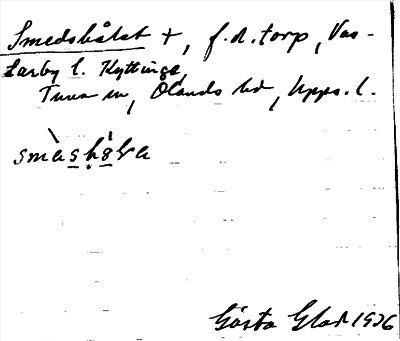 Smedshålet +, f.d. torp, Vas-
tarby l. Kyttinge,
Tuna sn, Olands hd, Upps. l.
smὰs̲ḥ8̲́ɫa
Gösta Glad 1926